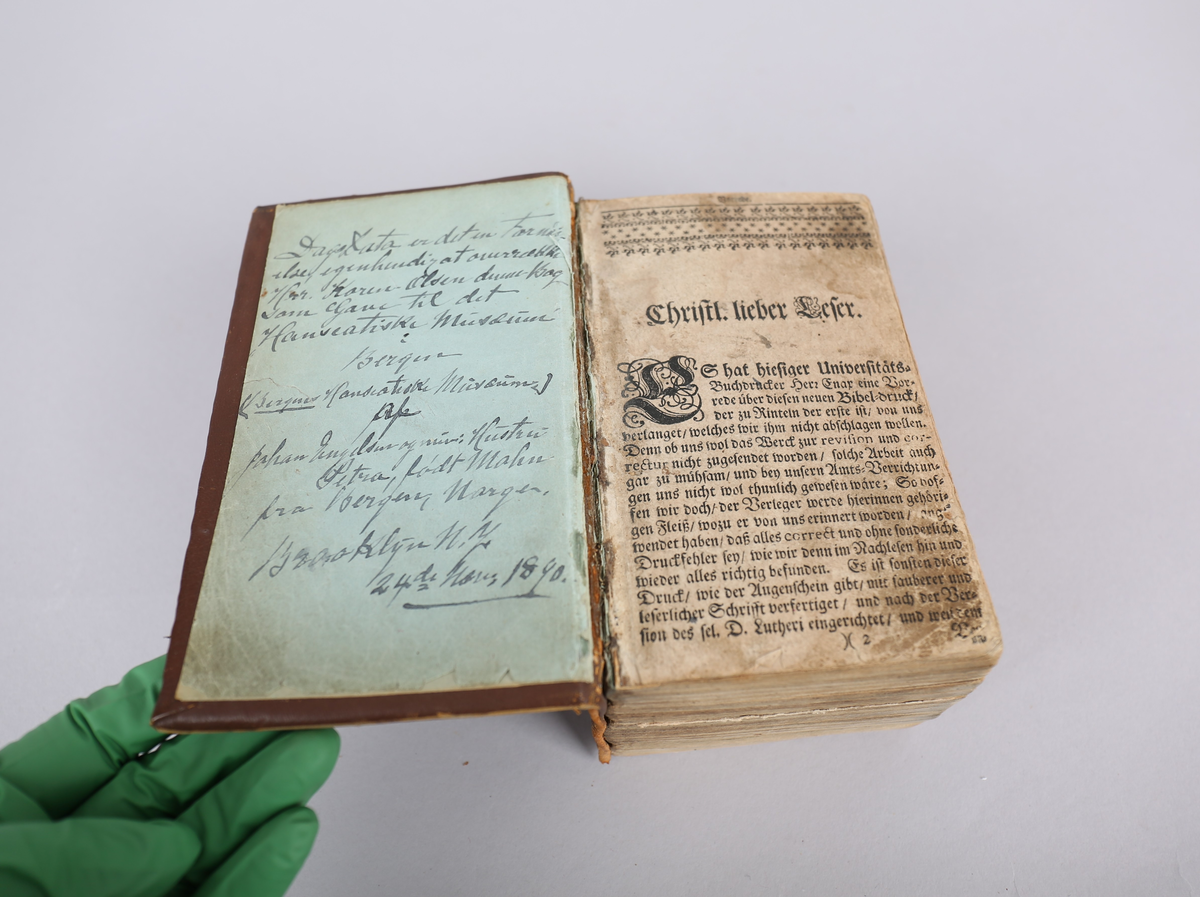 Dags Data er det en Fornöi-
else, egenhendig at overrække
Hrr. Koren Olsen denne Bog
som Gave til det
Hanseatiske Musæum
Bergen
(Bergens Hanseatiske Musæum)
af
Johan Engelsen og min Hustru
Petra, født Mohn
fra Bergen, Norge.
Brooklyn N.Y.
24de Nov. 1890.
Christl. lieber Leser.
ES hat hiesiger Universitäts-
Buchdrucker Herr Enax eine Vor-
rede über diesen neuen Bibel-druck/
der zu Rinteln der erste ist/ von uns
verlanget/ welches wir ihm nicht abschlagen wollen.
Denn ob uns wol das Werck zur revision und cor-
rectur nicht zugesendet worden/ solche Arbeit auch
gar zu mühsam/ und bey unsern Amts-Verrichtun-
gen uns nicht wol thunlich gewesen wäre; So hof-
fen wir doch/ der Verleger werde hierinnen gehöri-
gen Fleiß/ wozu er von uns erinnert worden/ ange-
wendet haben/ daß alles correct und ohne sonderliche
Druckfehler sey/ wie wir denn im Nachlesen hin und
wieder alles richtig befunden. Es ist sonsten dieser
Druck/ wie der Augenschein gibt/ mit sauberer und
leserlicher Schrifft verfertiget/ und nach der Ver-
sion des sel. D. Lutheri eingerichtet/ und weil dem
)( 2